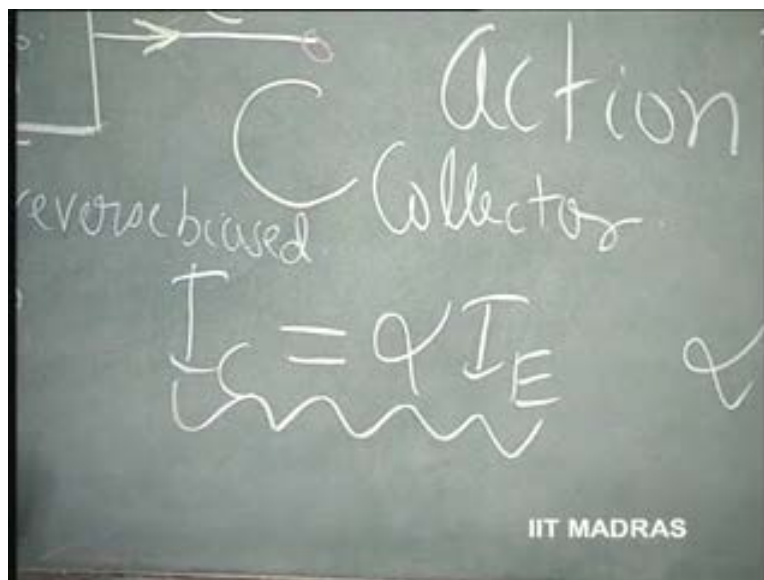 action
C Collector
reverse biased.
I_C = α I_E α
IIT MADRAS